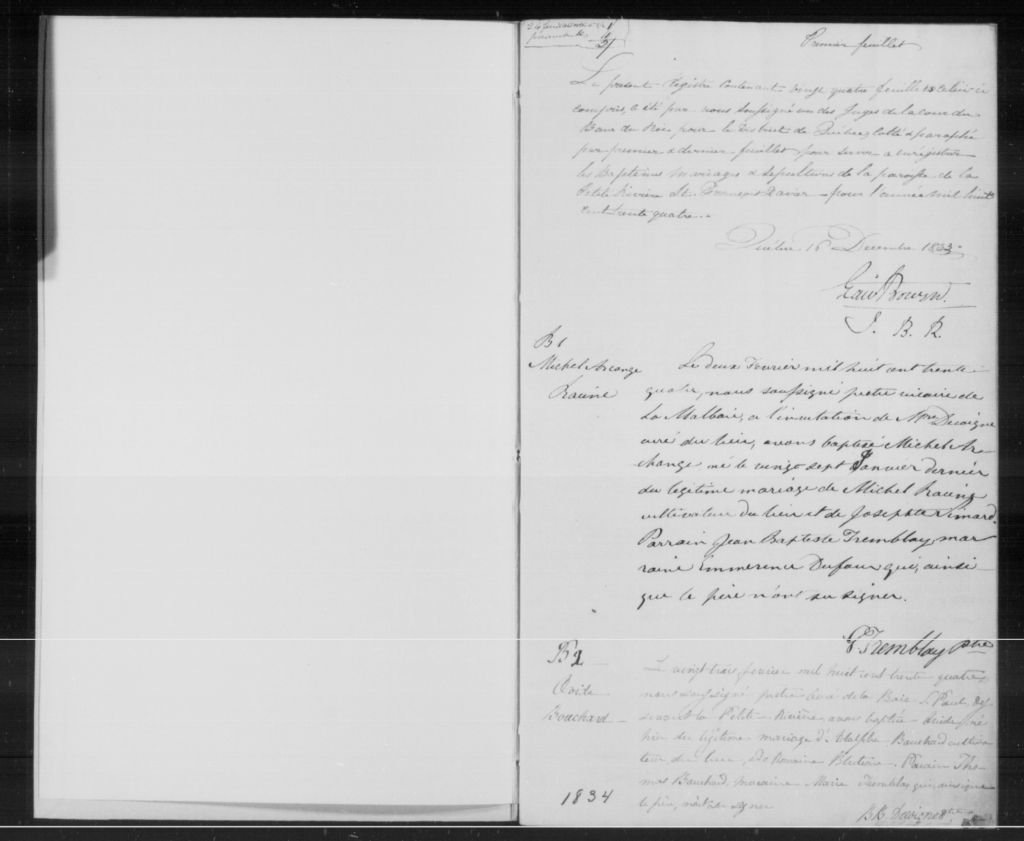 Premier feuillet
Le present Registre contenant vingt quatre feuillets celui ci
compris, a été par nous soussigné un des Juges de la cour du
Banc du Roi pour le District de Québec, cotté & paraphé
par premier & dernier feuillet pour servir a enregistrer
les Baptêmes Mariages & Sepultures de la paroisse de la
Petite Rivière St. François Xavier pour l'année mil huit
cent trente quatre.
Quebec 16 Decembre 1833
Edw Bowen
J. B. R.
B1
Michel Arcange
Racine
Le deux Fevrier mil huit cent trente
quatre, nous soussigné pretre vicaire de
La Malbaie, a l'invitation de Mre Decoigne
curé du lieu, avons baptisé Michel Ar
change né le vingt sept Janvier dernier
du legitime mariage de Michel Racine
cultivateur du lieu et de Josephte Simard.
Parrain Jean Baptiste Tremblay, mar
raine Emmerence Dufour qui, ainsi
que le père n'ont su signer.
Tremblay Ptre
B2
Ovide
Bouchard
Le vingt trois fevrier mil huit cent trente quatre
nous soussigné prêtre curé de la Baie St Paul, des
servant la Petite Rivière, avons baptisé Ovide, né
hier du légitime mariage d' Bouchard cultiva
teur du lieu, & de Parrain Tho
mas Bouchard, maraine Marie Tremblay qui, ainsi que
le père, n'ont su signer
1834